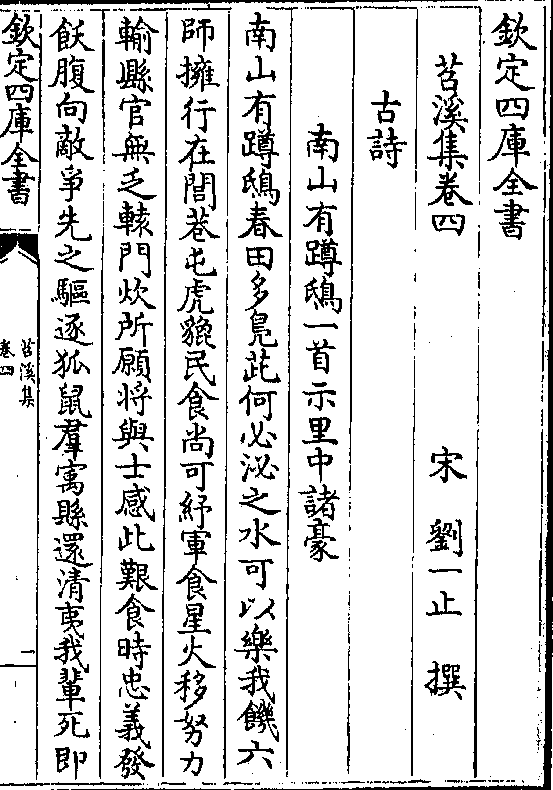 欽定四庫全書
苕溪集卷四
宋 劉一止 撰
古詩
南山有蹲鴟一首示里中諸豪
南山有蹲鴟春田多鳧茈何必泌之水可以樂我饑六
師擁行在閭巷屯虎貔民食尚可紓軍食星火移努力
輸縣官無乏轅門炊所願將與士感此艱食時忠義發
飫腹向敵爭先之驅逐狐鼠羣寓縣還清夷我輩死即
欽定四庫全書
苕溪集
卷四
一